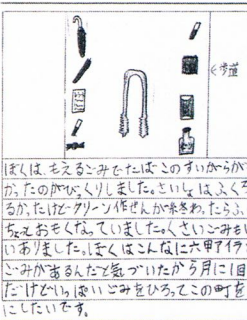 ←歩道
ぼくは、もえるごみでたばこのすいがらが
かったのがびっくりしました。さいしょはふくろ
るかったけどクリーン作せんが終わったらふ
ちゃえおもくなっていました。くさいごみも
いありました。ぼくはこんなに六甲アイラ
ごみがあるんだと気づいたから月に1回
だけどいっぱいごみをひろってこの町を
にしたいです。